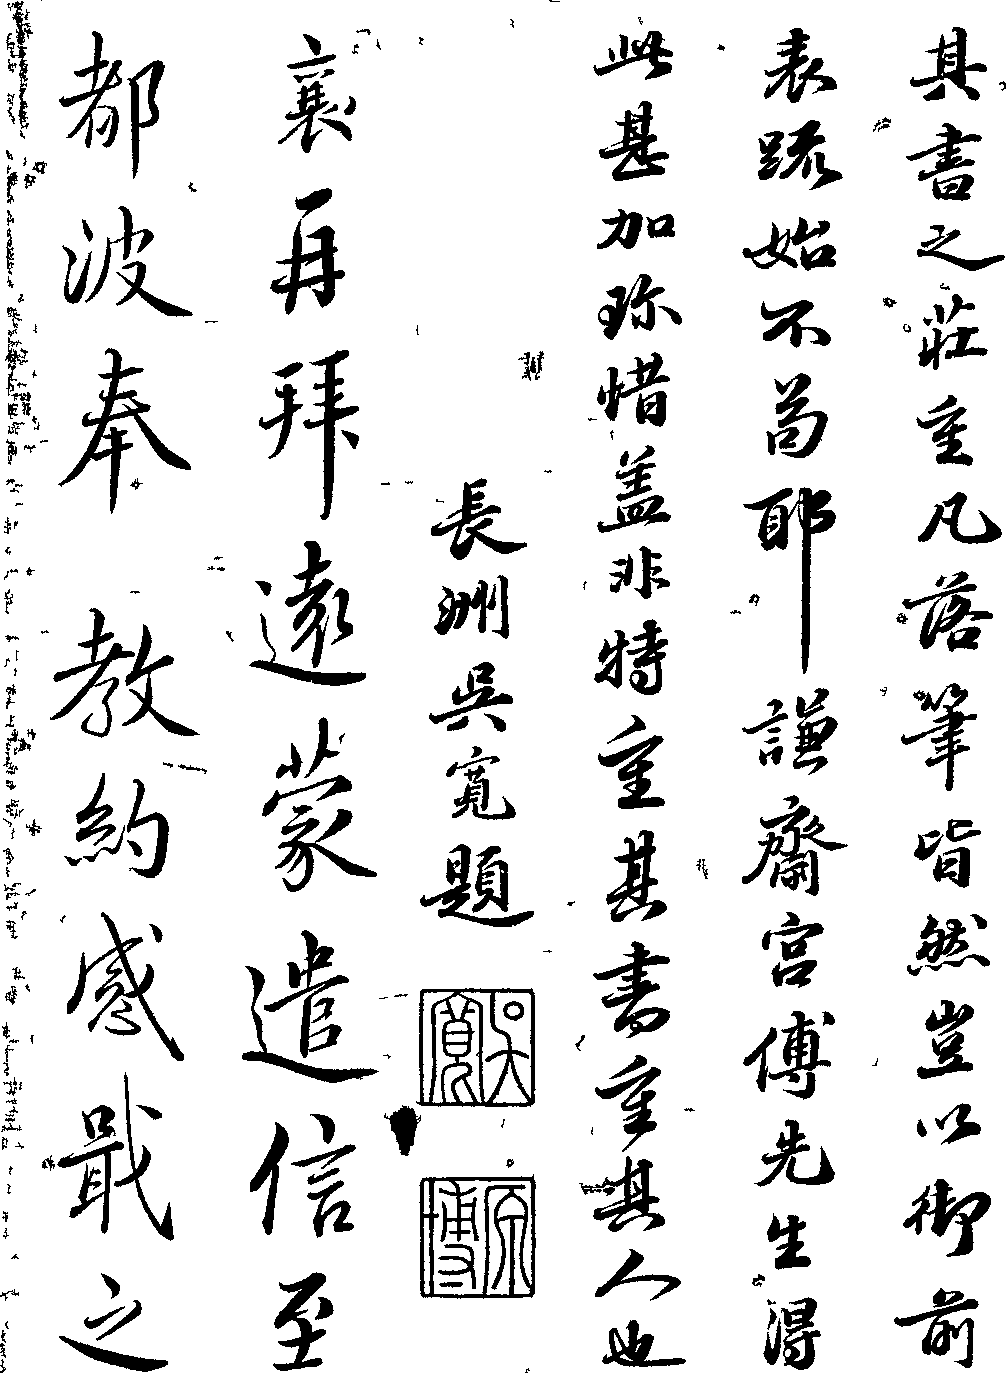 其書之莊重凡落筆皆然豈以御前
表疏始不苟耶謙齋宫傅先生得
此甚加珎惜盖非特重其書重其人也
長洲吳寬題
吳寬
原博
襄再拜遠蒙遣信至
都波奉教約感戢之